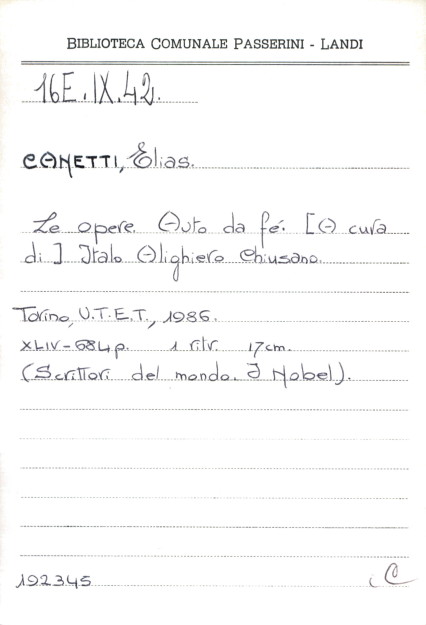 BIBLIOTECA COMUNALE PASSERINI - LANDI
16E.IX.42.
CANETTI, Elias.
Le opere. Auto da fé. [A cura
di] Italo Alighiero Chiusano.
Torino, U.T.E.T., 1986.
XLIV-684p. 1 ritr. 17cm.
(Scrittori del mondo. I Nobel).
192345
C